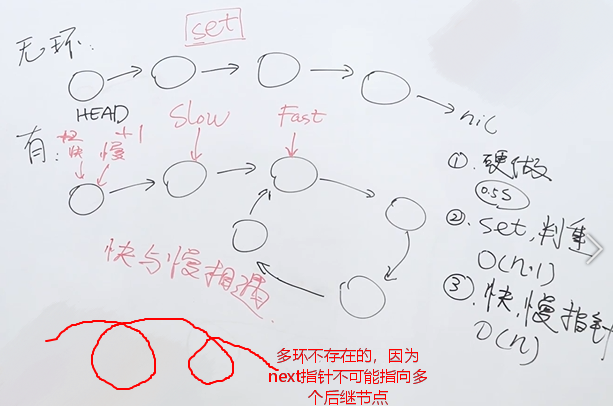 无环:
set
HEAD
nil
有:
+2
快
慢
+1
Slow
Fast
快与慢相遇
①.硬做
0.5S
②.set,判重
O(n·1)
③.快,慢指针
O(n)
多环不存在的，因为
next指针不可能指向多
个后继节点